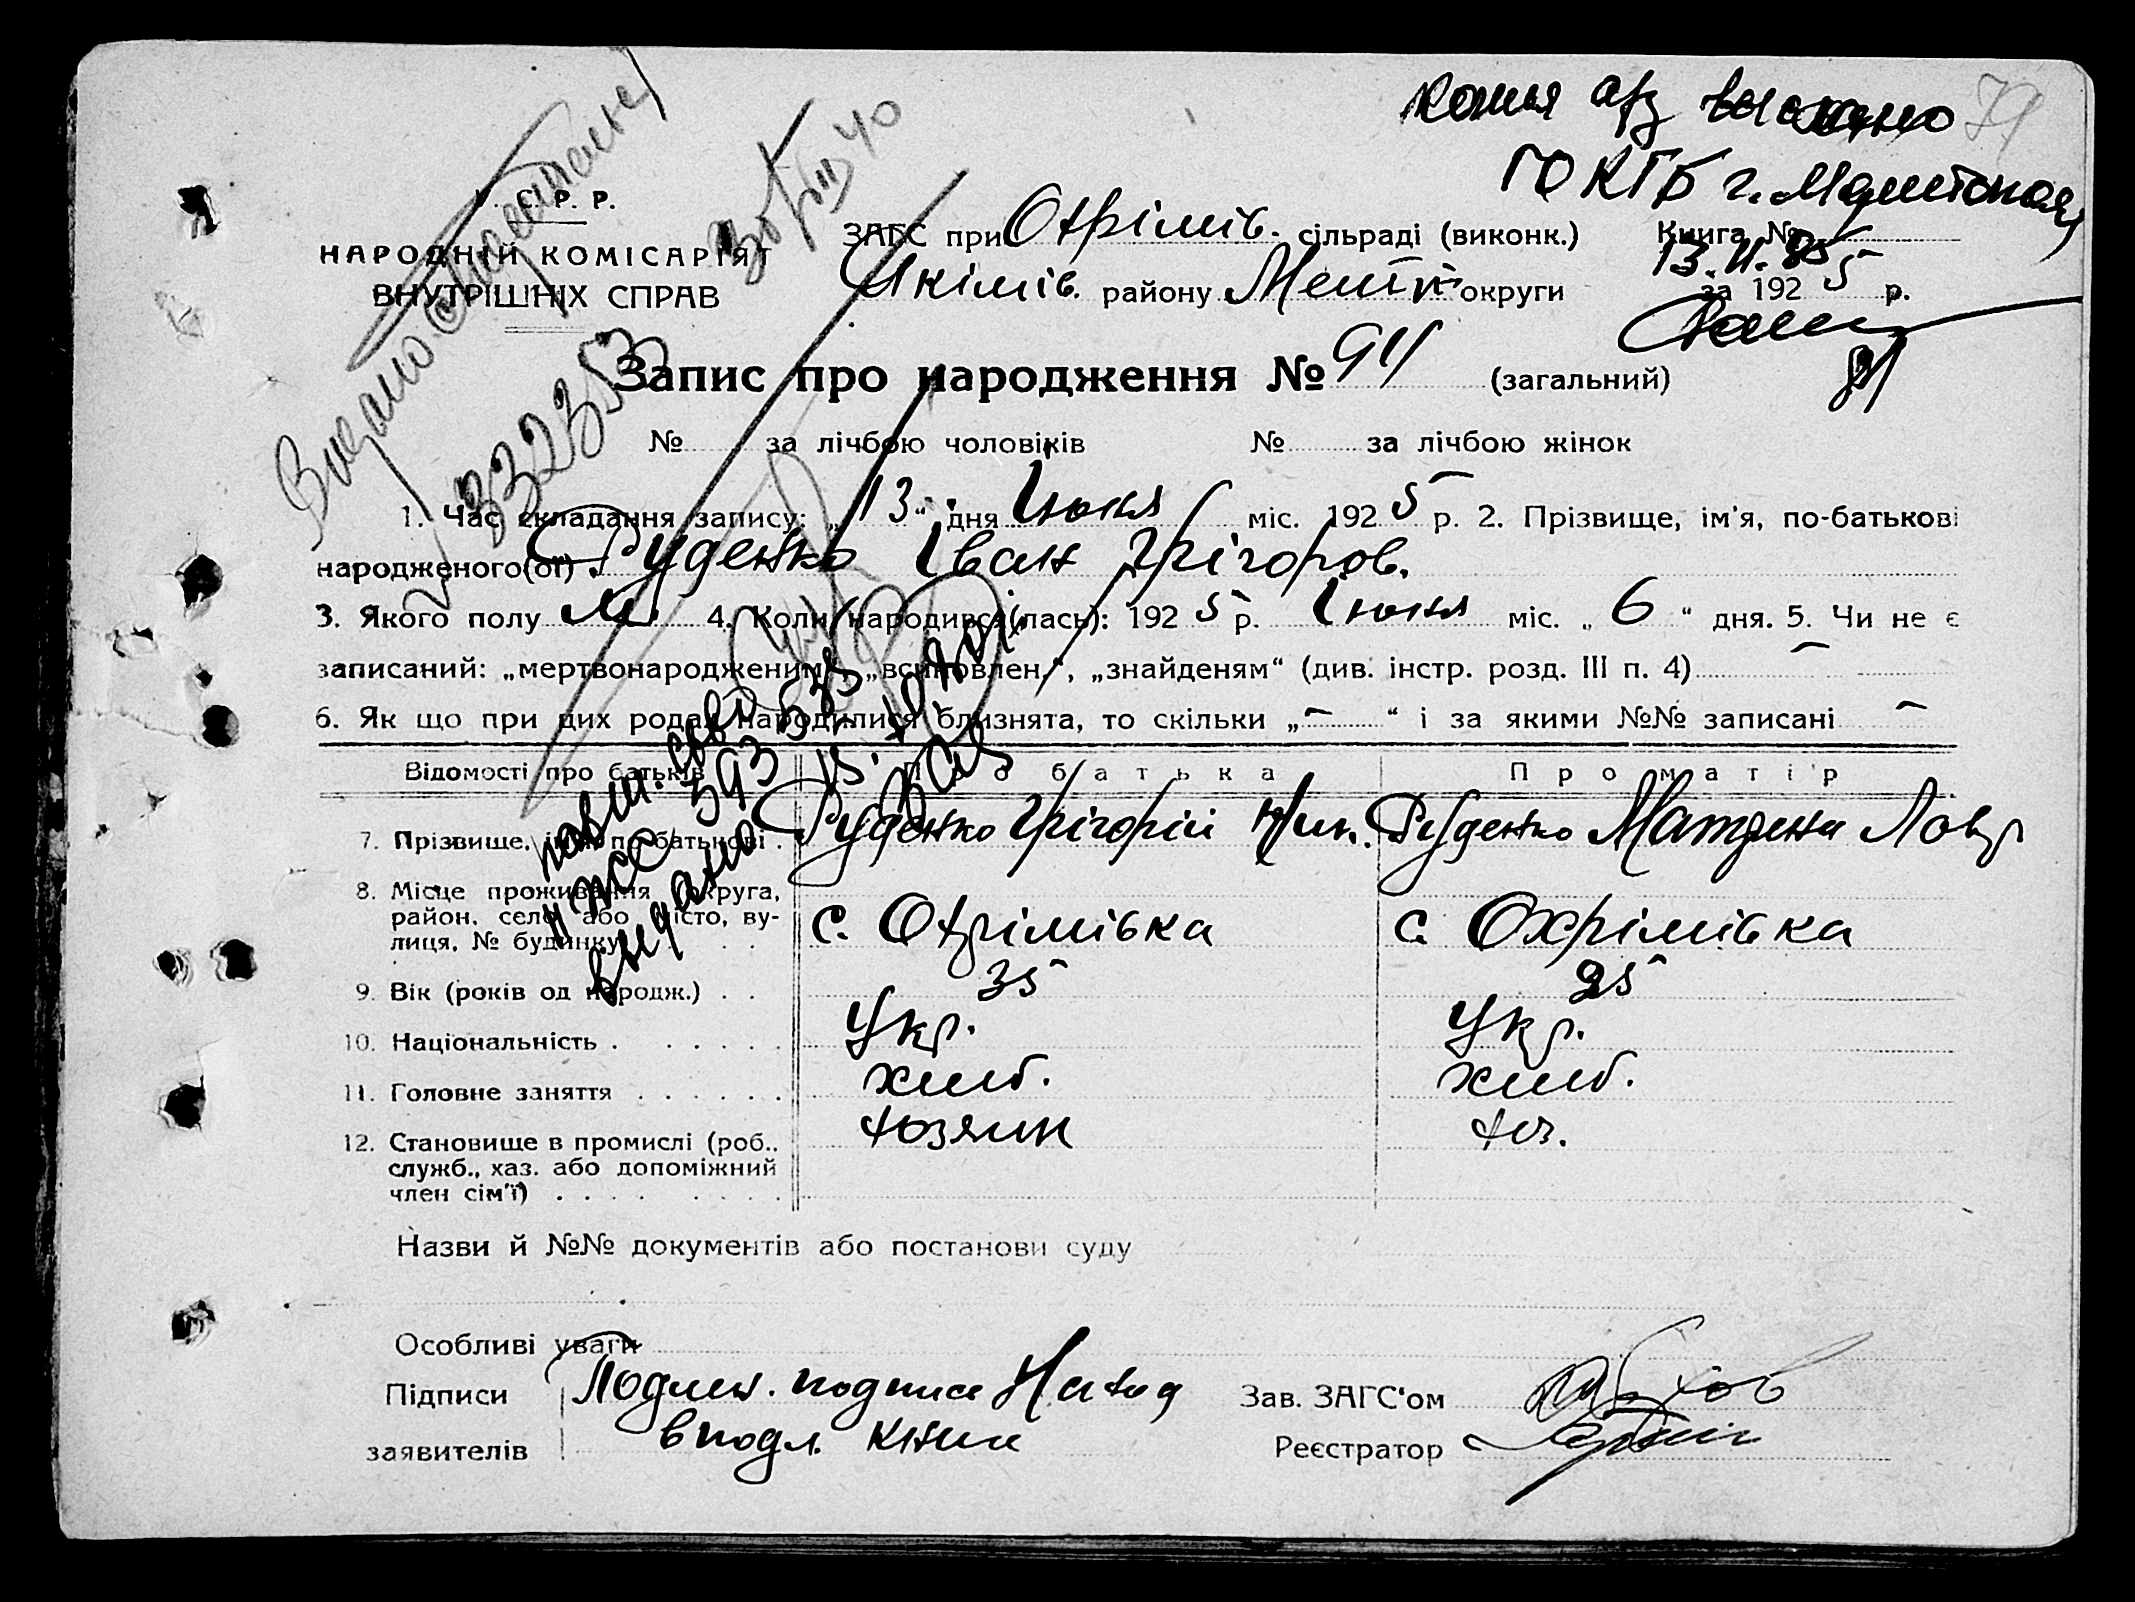 копия а/з выслано 79
ГО КГБ г. Мелитополя
13.11.85
У. С. Р. Р.
НАРОДНІЙ КОМІСАРІЯТ
ВНУТРІШНІХ СПРАВ
Видано
332353
ЗАГС при Охрімів. сільраді (виконк.) Книга №
Якімів. району Меліт. округи за 1925 р.
Запис про народження № 94 (загальний)
№ за лічбою чоловіків № за лічбою жінок
1. Час складання запису: „13“ дня Июня міс. 1925 р. 2. Прізвище, ім'я, по-батькові
народженого(ої) Руденко Іван Грігоров.
3. Якого полу М. 4. Коли народився(лась): 1925 р. Июня міс. „6“ дня. 5. Чи не є
записаний: „мертвонародженим“, „всиновлен.“, „знайденям“ (див. інстр. розд. III п. 4) –
6. Як що при цих родах народилися близнята, то скільки „–“ і за якими №№ записані –
Відомості про батьків Про батька Про матір
7. Прізвище, ім'я по-батькові Руденко Грігорій Ник. Руденко Матрена Лавр
8. Місце проживання (округа,
район, село або місто, ву-
лиця, № будинку) с. Охрімівка с. Охрімівка
9. Вік (років од народж.) 35 25
10. Національність Укр. Укр.
11. Головне заняття хліб. хліб.
12. Становище в промислі (роб.,
служб., хаз. або допоміжний
член сім'ї) хозяин хоз.
повт. свид
593 535
выдано
Назви й №№ документів або постанови суду
Особливі уваги
Підписи Подлин. подписи Наход Зав. ЗАГС'ом
заявителів в подл. книге Реєстратор